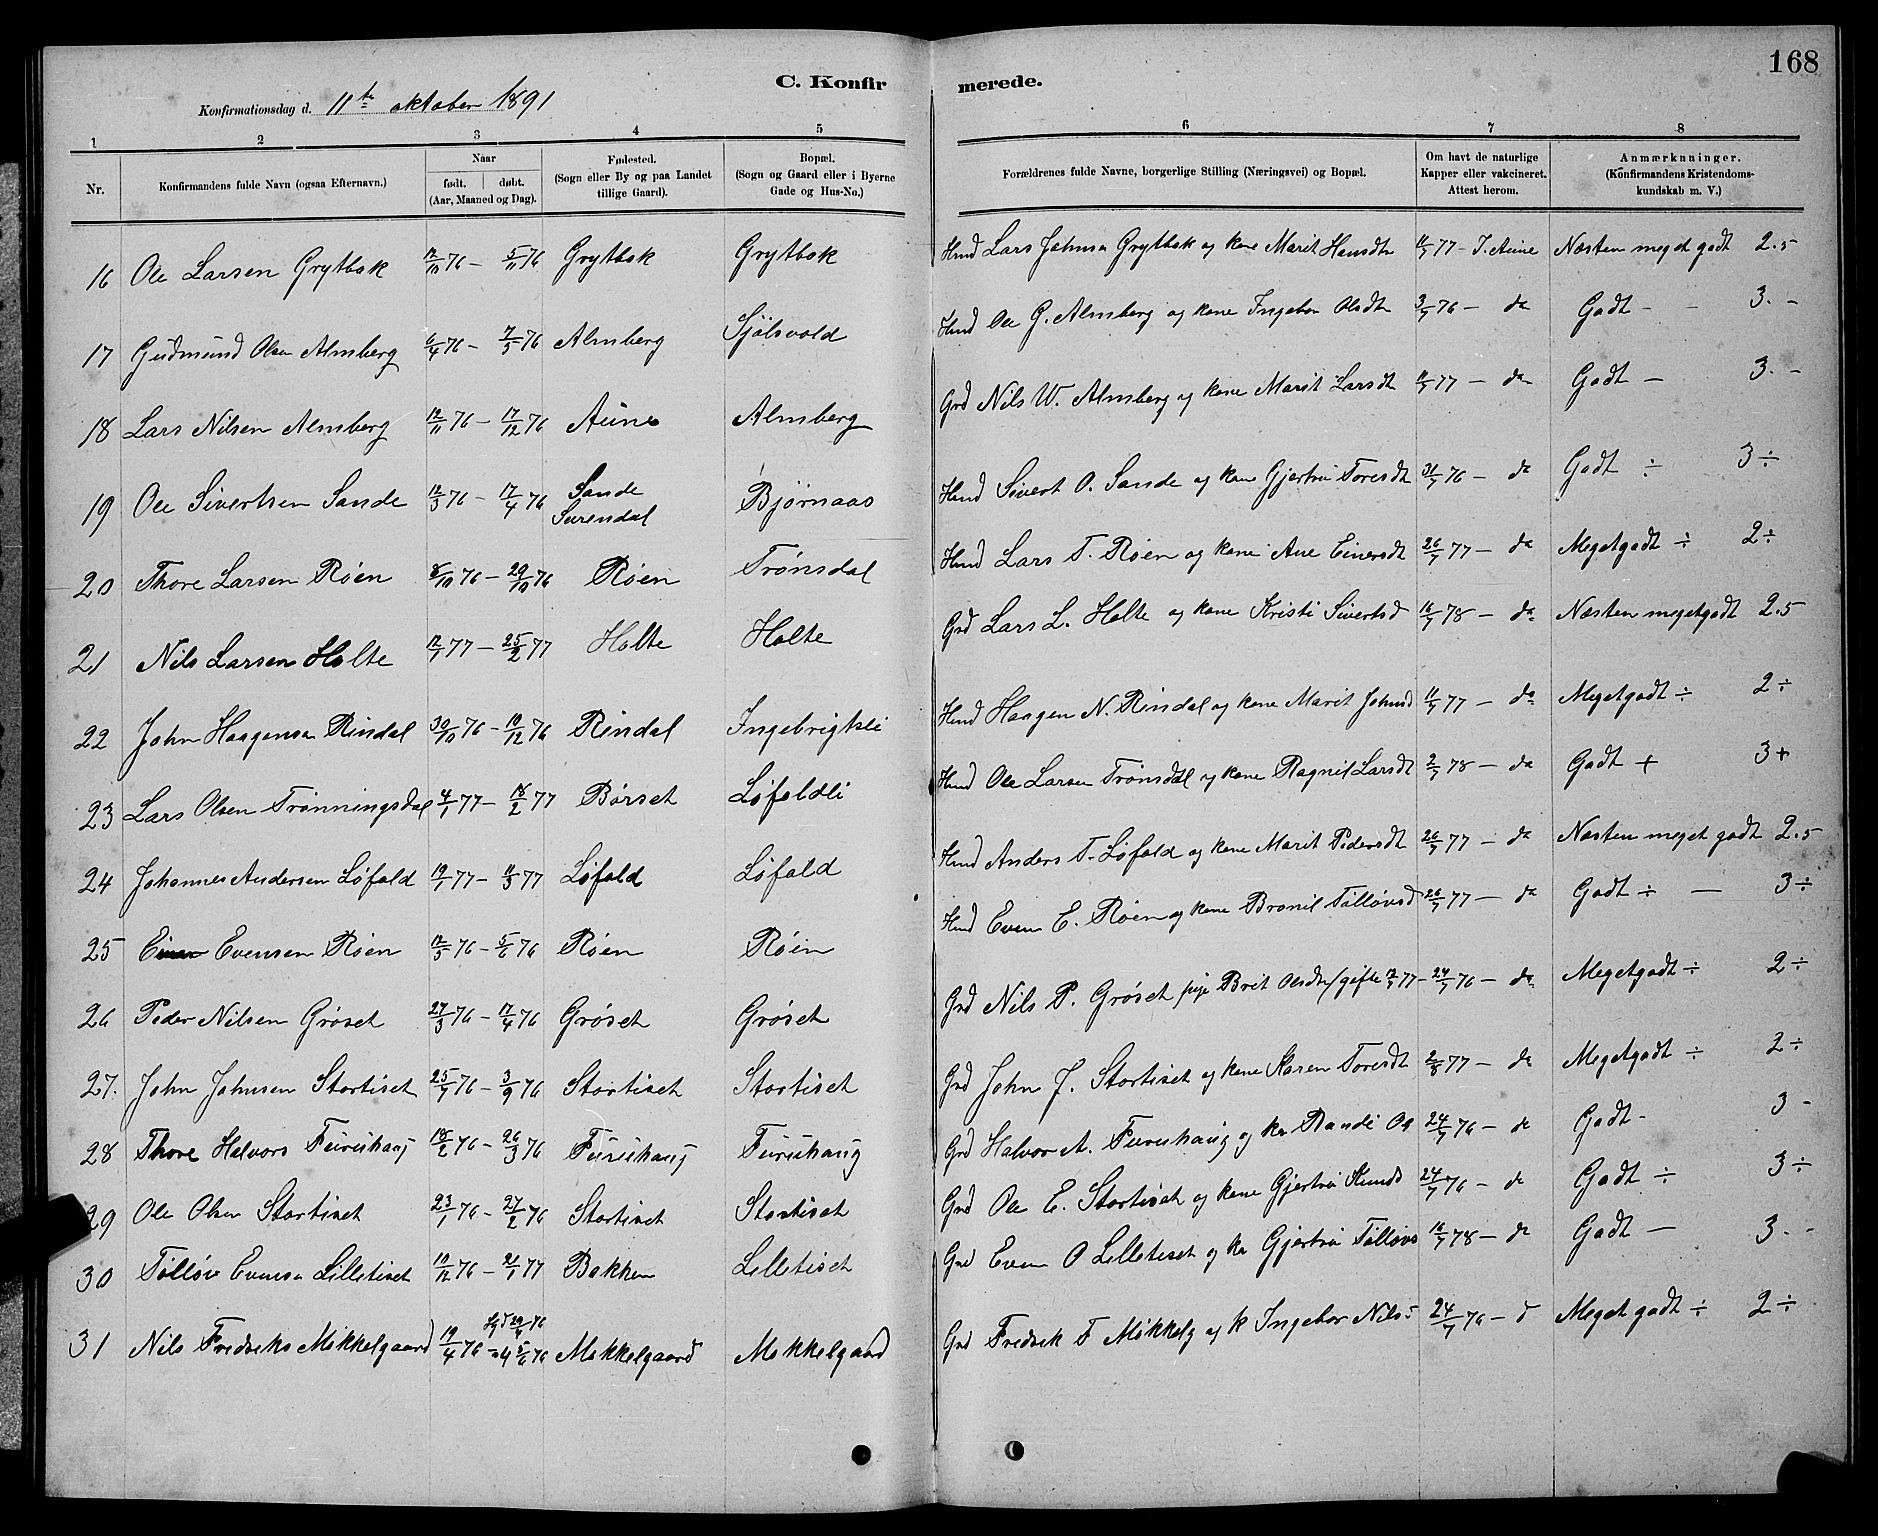 168
C. Konfirmerede.
Konfirmationsdag d. 11te oktober 1891
1 2 3 4 5 6 7 8
Nr. Konfirmandens fulde Navn (ogsaa Efternavn). Naar født. døbt. (Aar, Maaned og Dag). Fødested. (Sogn eller By og paa Landet tillige Gaard). Bopæl. (Sogn og Gaard eller i Byerne Gade og Hus-No.) Forældrenes fulde Navne, borgerlige Stilling (Næringsvei) og Bopæl. Om havt de naturlige Kapper eller vakcineret. Attest herom. Anmærknninger. (Konfirmandens Kristendomskundskab m. V.)
16 Ole Larsen Grytbak 12/10 76 – 5/11 76 Grytbak Grytbak Hmd Lars Johnsn Grytbak og kone Marit Hansdtr 11/7 77 – I. Aune Næsten meget godt 2.5
17 Gudmund Olsen Almberg 6/4 76 – 7/5 76 Almberg Sjølsvold Hmd Ole G. Almberg og kone Ingebor Olsdt 3/7 76 – do Godt – – 3. –
18 Lars Nilsen Almberg 12/11 76 – 17/12 76 Aune Almberg Grd Nils W. Almberg og kone Marit Larsdt 11/7 77 – do Godt – 3. –
19 Ole Sivertsen Sande 12/3 76 – 17/4 76 Sande Surendal Bjørnaas Hmd Sivert O. Sande og kone Gjertru Toresdt 31/7 76 – do Godt ÷ 3 ÷
20 Thore Larsen Røen 8/10 76 – 29/10 76 Røen Trønsdal Hmd Lars T. Røen og kone Ane Einersdt 26/7 77 – do Megetgodt ÷ 2 ÷
21 Nils Larsen Holte 12/1 77 – 25/2 77 Holte Holte Grd Lars L. Holte og kone Kristi Sivertsd 16/7 78 – do Næsten megetgodt 2.5
22 John Haagensn Rindal 30/10 76 – 10/12 76 Rindal Ingebrigtsli Hmd Haagen N. Rindal og kone Marit Johnsd 11/7 77 – do Megetgodt ÷ 2 ÷
23 Lars Olsen Trønningsdal 4/1 77 – 18/2 77 Børset Løfaldli Hmd Ole Larsen Trønsdal og kone Ragnil Larsdt 2/7 78 – do Godt + 3 +
24 Johannes Andersen Løfald 19/1 77 – 11/3 77 Løfald Løfald Hmd Anders T. Løfald og kone Marit Pedersdt 26/7 77 – do Næsten meget godt 2.5
25 Einar Evensen Røen 12/5 76 – 5/6 76 Røen Røen Hmd Even E. Røen og kone Bronil Tølløvsd 26/7 77 – do Godt ÷ – 3 ÷
26 Peder Nilsen Grøset 27/3 76 – 17/4 76 Grøset Grøset Grd Nils P. Grøset pige Brit Olsdtr (gifte 12/7 77 – 24/7 76 – do Megetgodt ÷ 2 ÷
27. John Johnsen Stortiset 25/7 76 – 3/9 76 Stortiset Stortiset Grd John J. Stortiset og kone Karen Toresdt 2/8 77 – do Megetgodt ÷ 2 ÷
28 Thore Halvors Furuhaug 18/2 76 – 26/3 76 Furuhaug Furuhaug Grd Halvor A. Furuhaug og ko Randi Os 24/7 76 – do Godt – 3 –
29 Ole Olsen Stortiset 23/1 76 – 27/2 76 Stortiset Stortiset Grd Ole E. Stortiset og kone Gjertru Knuds 24/7 76 – do Godt ÷ 3 ÷
30 Tølløv Evensn Lilletiset 10/12 76 – 21/1 77 Bakken Lilletiset Grd Even O Lilletiset og ko Gjertru Tølløvs 16/7 78 – do Godt – 3. –
31 Nils Fredriks Mikkelgaard 19/4 76 – 5/6 76 Mikkelgaard Mikkelgaard Grd Fredrik F Mikkelg og k Ingebor Nils 24/7 76 – d Meget godt ÷ 2 ÷